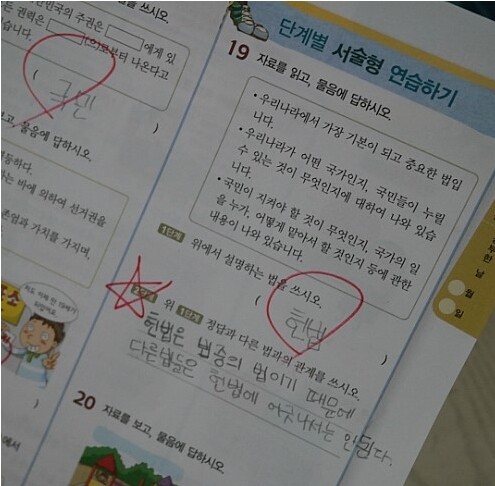 한민국의 주권은 에게 있
는 권력은 (으)로부터 나온다고
습니다.
( 국민 )
고, 물음에 답하시오.
등하다.
하는 바에 의하여 선거권을
존엄과 가치를 가지며,
단계별 서술형 연습하기
19 자료를 읽고, 물음에 답하시오.
• 우리나라에서 가장 기본이 되고 중요한 법입
니다.
• 우리나라가 어떤 국가인지, 국민들이 누릴
수 있는 것이 무엇인지에 대하여 나와 있습
니다.
• 국민이 지켜야 할 것이 무엇인지, 국가의 일
을 누가, 어떻게 맡아서 할 것인지 등에 관한
내용이 나와 있습니다.
1단계 위에서 설명하는 법을 쓰시오.
( 헌법 )
2단계 위 1단계 정답과 다른 법과의 관계를 쓰시오.
헌법은 법중의 법이기 때문에
다른법들은 헌법에 어긋나서는 안된다.
20 자료를 보고, 물음에 답하시오.
월
일